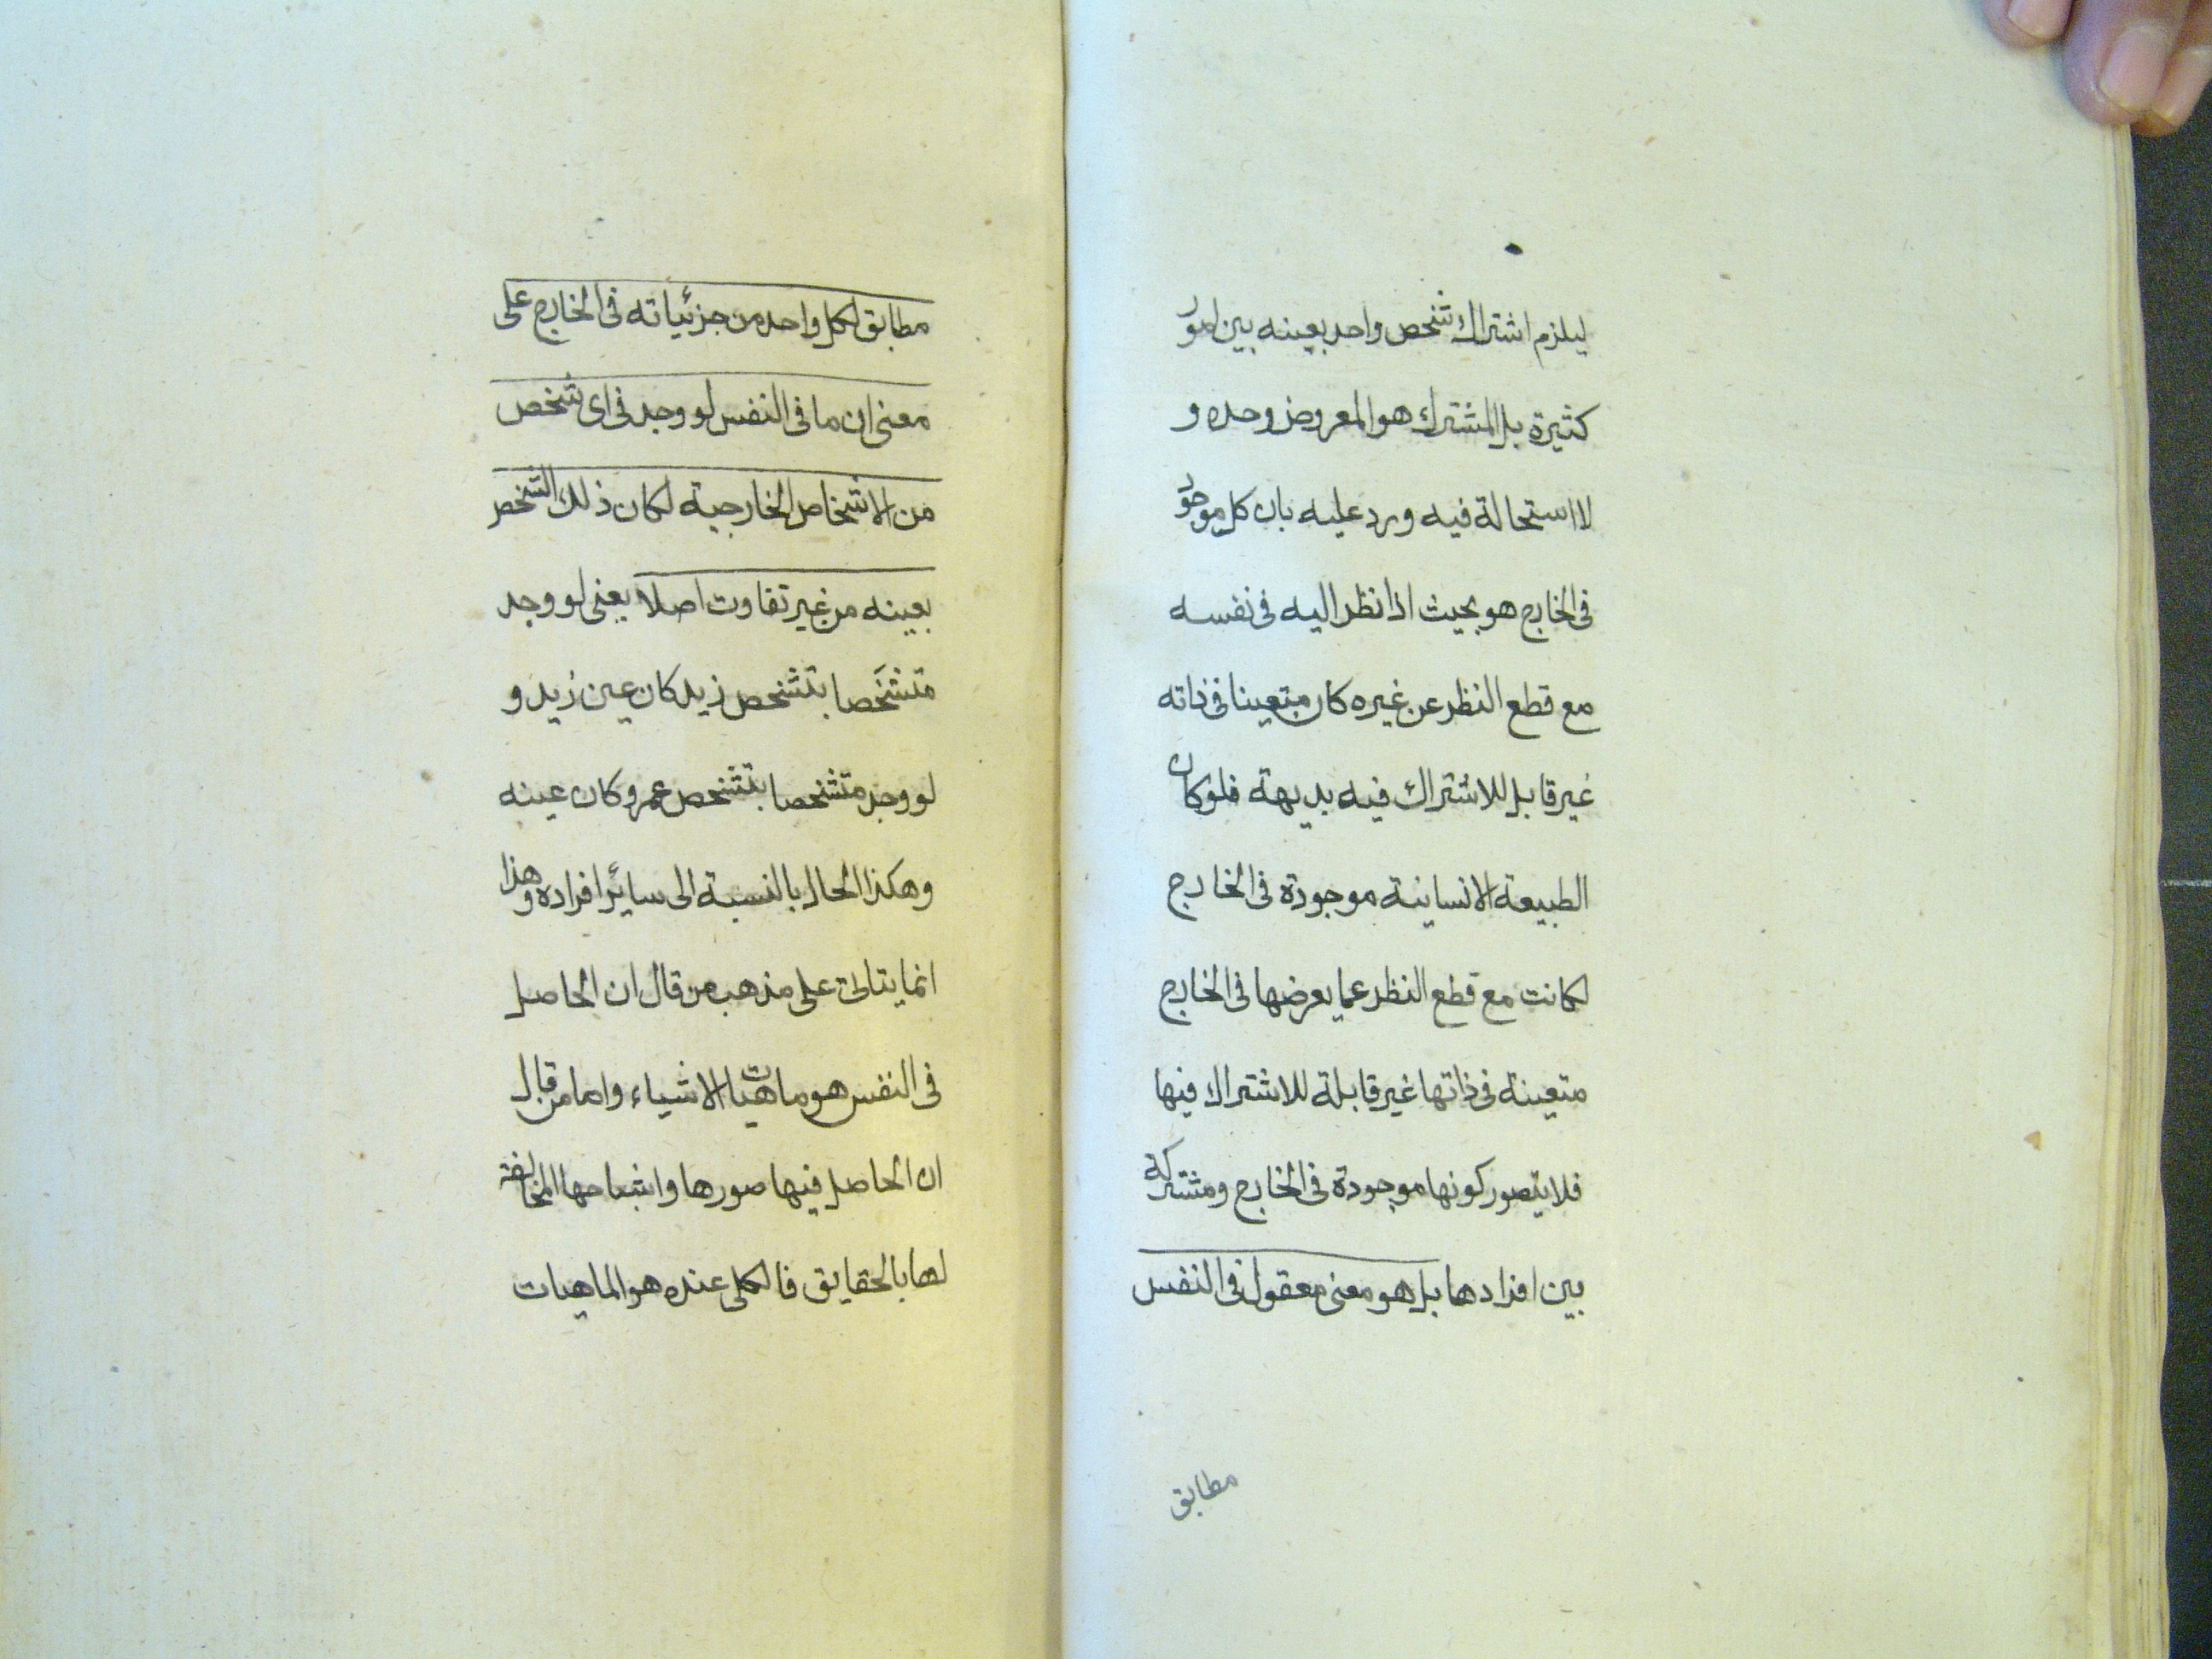 ليلزم اشتراك شخص واحد بعينه بين امور
كثيرة بل المشترك هو المعروض وحده و
لا استحالة فيه ورد عليه بان كل موجود
فى الخارج هو بحيث اذا نظر اليه فى نفسه
مع قطع النظر عن غيره كان متعينا فى ذاته
غير قابل للاشتراك فيه بديهة فلو كان
الطبيعة الانسانية موجودة فى الخارج
لكانت مع قطع النظر عما يعرضها فى الخارج
متعينة فى ذاتها غير قابلة للاشتراك فيها
فلا يتصور كونها موجودة فى الخارج ومشتركة
بين افرادها بل هو معنى معقول فى النفس
مطابق
مطابق لكل واحد من جزئياته فى الخارج على
معنى ان ما فى النفس لو وجد فى اى شخص
من الاشخاص الخارجية لكان ذلك الشخص
بعينه من غير تفاوت اصلا يعنى لو وجد
متشخصا بتشخص زيد كان عين زيد و
لو وجد متشخصا بتشخص عمرو كان عينه
وهكذا الحال بالنسبة الى سائر افراده وهذا
انما يتاتى على مذهب من قال ان الحاصل
فى النفس هو ماهيات الاشياء واما من قال
ان الحاصل فيها صورها واشباحها المخالفة
لها بالحقايق فالكلى عنده هو الماهيات